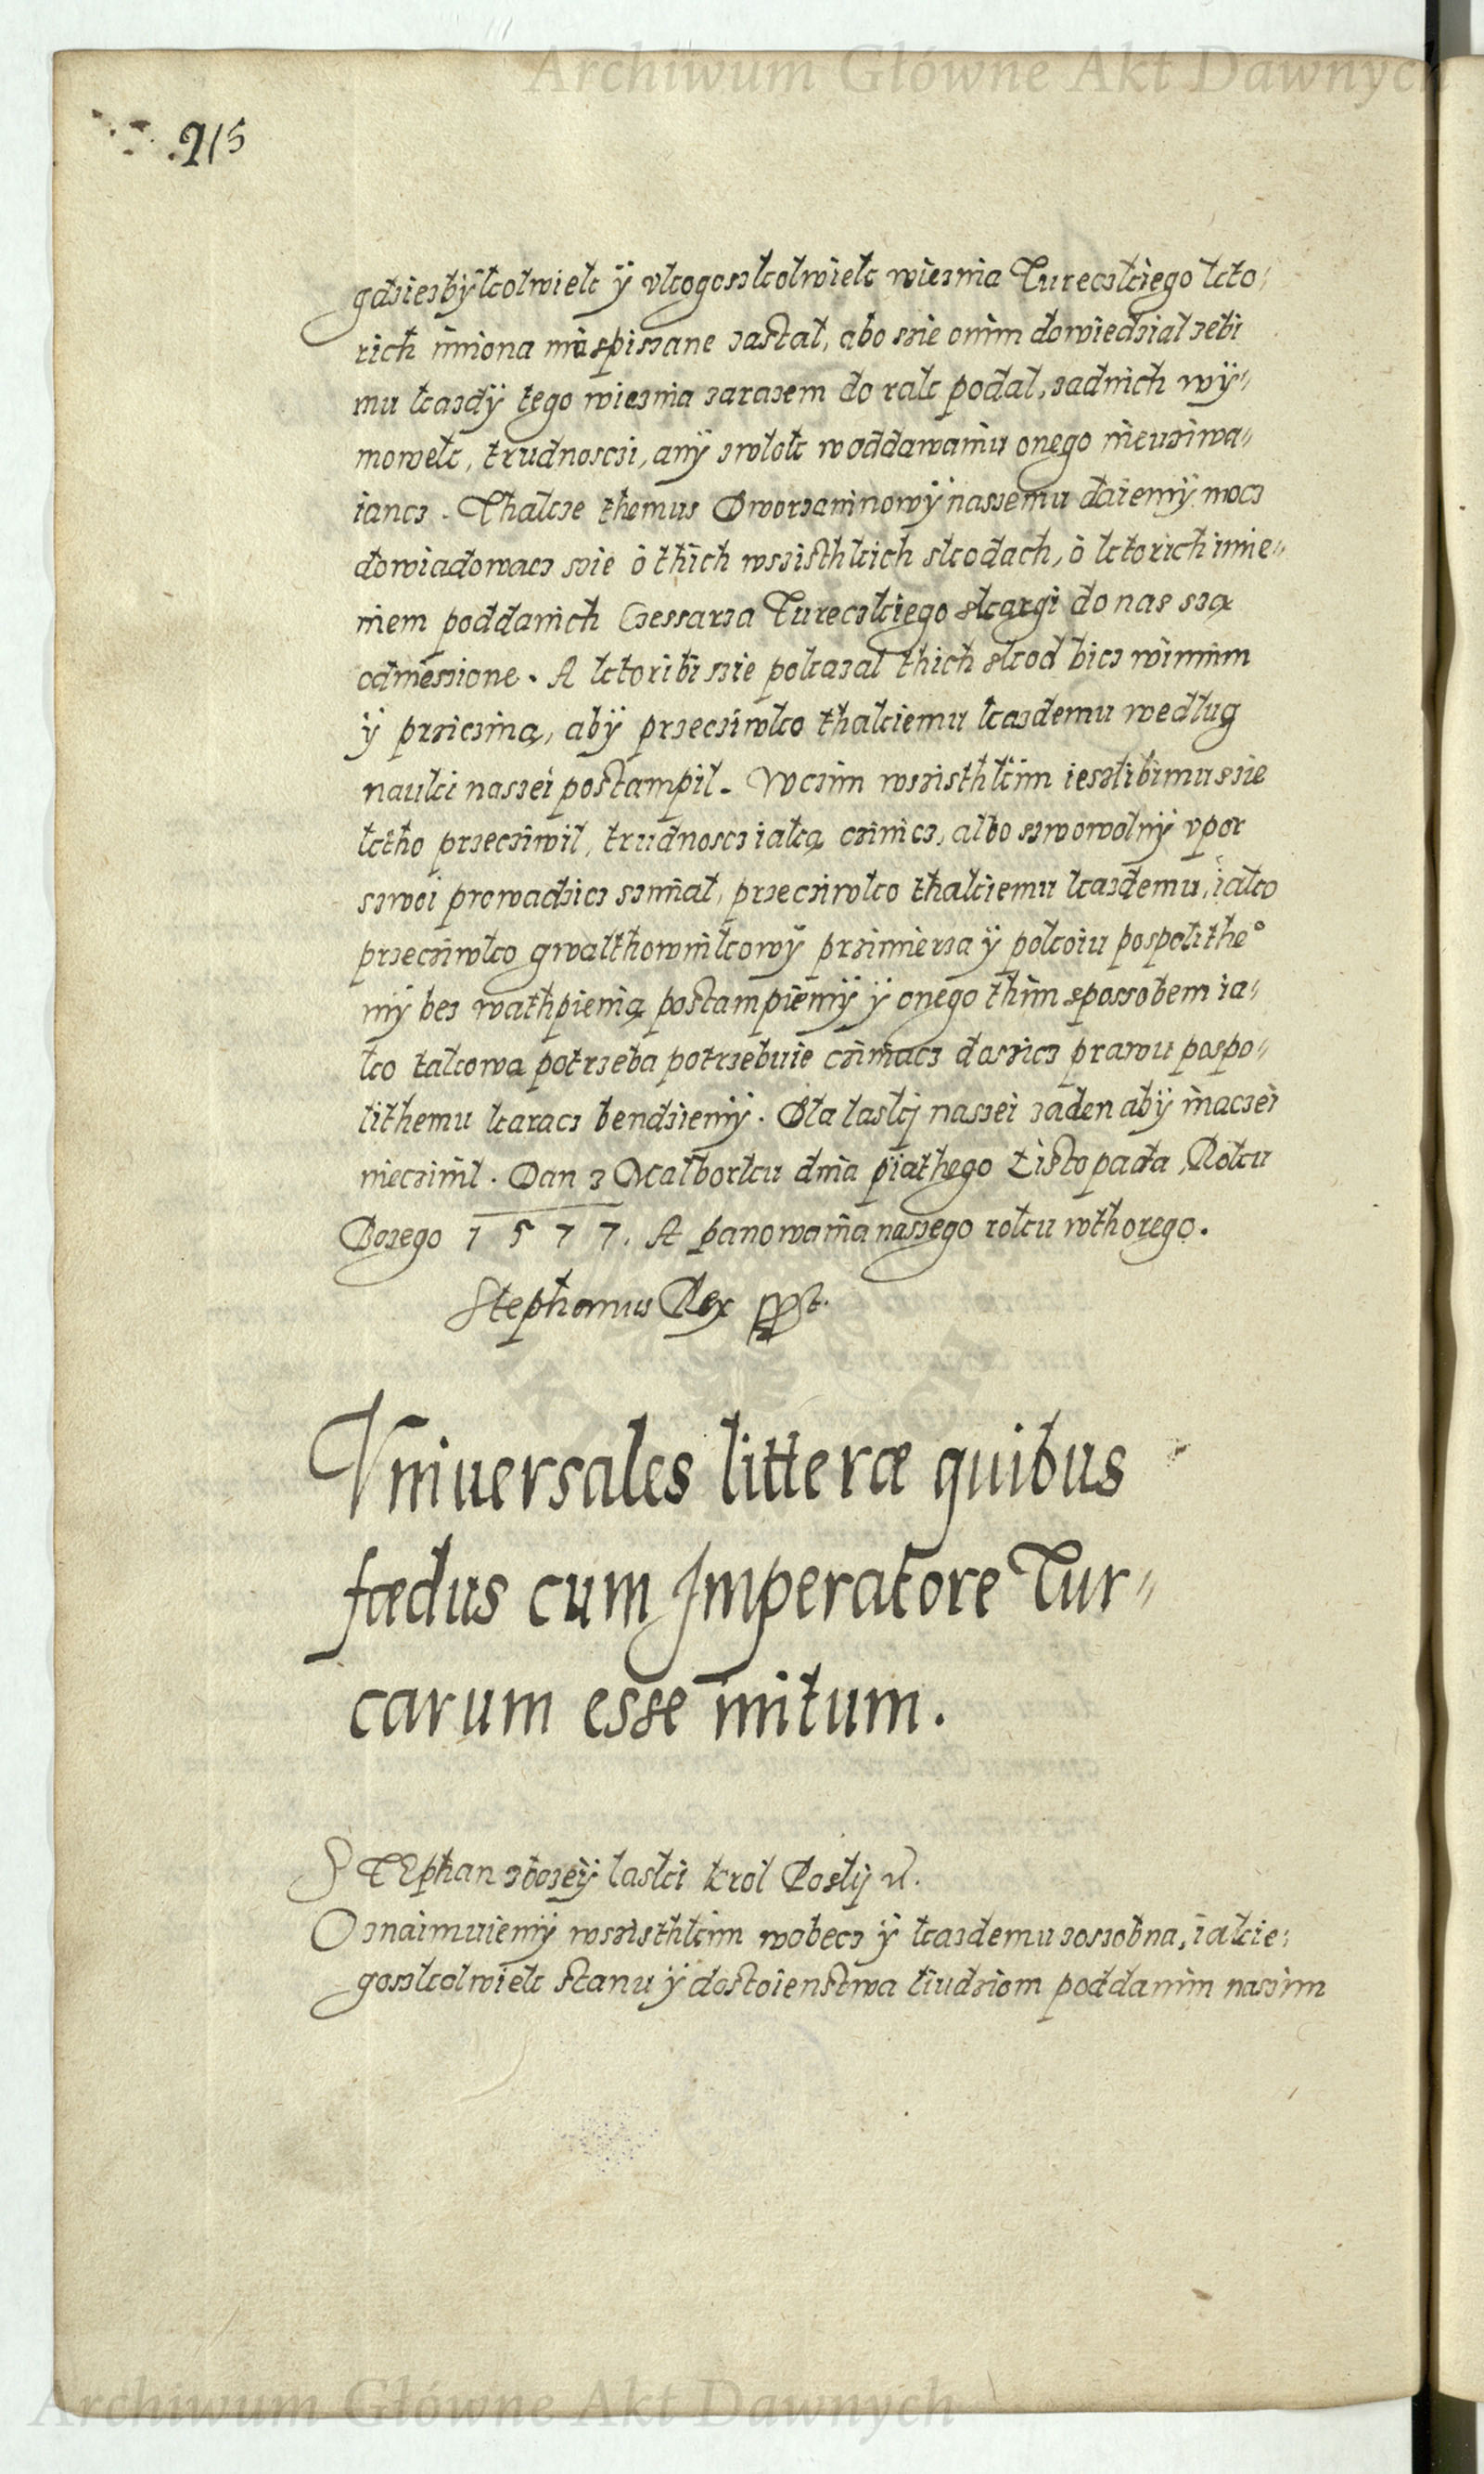 Archiwum Główne Akt Dawnych
215
gdziezbÿkolwiek ÿ vkogoszkolwiek wieznia Tureczkiego kto⸗
rich imiona ma spiszane zastal, abo szie onim dowiedzial zebi
mu kazdÿ tego wieznia zarazem do rak podal, zadnich wÿ⸗
mowek, trudnosczi, anÿ zwlok woddawaniu onego nieuziwa⸗
iancz. Thakze themus Dworzaninowÿ naszemu daiemÿ mocz
dowiadowacz szie o thich wszisthkich skodach, o ktorich imie⸗
niem poddanich Czessarza Tureczkiego skargi do nas szą
odniesione. A ktoribi szie pokazal thich skod bicz winnim
ÿ przicziną, abÿ przecziwko thakiemu kazdemu wedlug
nauki naszei postampil. Wczim wszisthkim ieszlibimu szie
ktho przecziwil, trudnoscz iaką czinicz, albo szwowolnÿ vpor
szwoi prowadzicz szmial, przecziwko thakiemu kazdemu, iako
przecziwko gwalthownikowÿ przimierza ÿ pokoiu pospolithe°
mÿ bez wathpienią postampiemÿ ÿ onego thim sposobem ia⸗
ko takowa potrzeba potrzebuie cziniacz doszicz prawu pospo⸗
lithemu karacz bendziemÿ. Dla laskj naszei zaden abÿ inaczei
nieczinil. Dan z Malborku dnia piathego Listopada, Roku
Bozego 1577. A panowania naszego roku wthorego.
Stephanus Rex sst.
Vniuersales litteræ quibus
fædus cum Imperatore Tur⸗
carum esse initum.
STEphan zbozeÿ laski krol Polskj etc.
Oznaimuiemÿ wszisthkim wobecz ÿ kazdemu zoszobna, iakie⸗
goszkolwiek stanu ÿ dostoienstwa liudziom poddanim naszim
Archiwum Główne Akt Dawnych